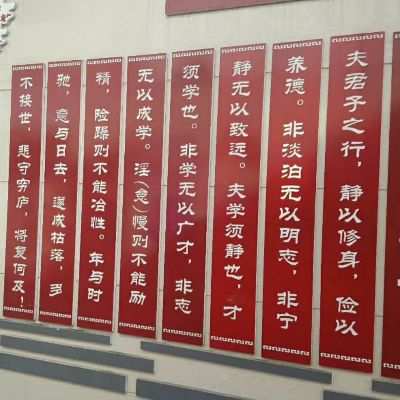 夫君子之行，静以修身，俭以
养德。非淡泊无以明志，非宁
静无以致远。夫学须静也，才
须学也。非学无以广才，非志
无以成学。淫（怠）慢则不能励
精，险躁则不能冶性。年与时
驰，意与日去，遂成枯落，多
不接世，悲守穷庐，将复何及！